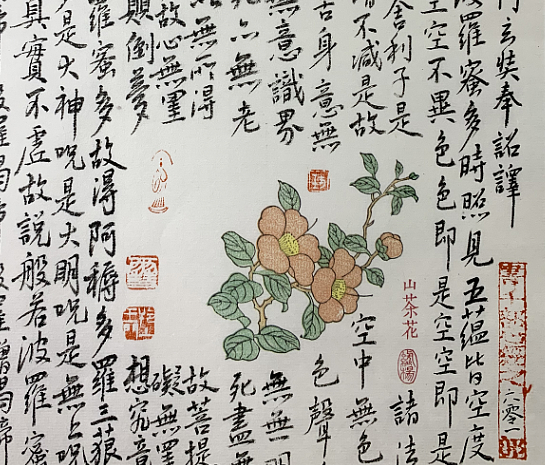 玄奘奉詔譯
波羅蜜多時照見五蘊皆空度
空空不異色色即是空空即是
舍利子是
諸法
增不減是故
空中無色
舌身意無
色聲
無意識界
無無明
死亦無老
死盡無
以無所得
故菩提
故心無罣
礙無罣
顛倒夢
想究竟
羅蜜多故得阿耨多羅三藐
是大神咒是大明咒是無上咒
真實不虛故說般若波羅蜜
羅揭帝
羅僧揭帝
山茶花